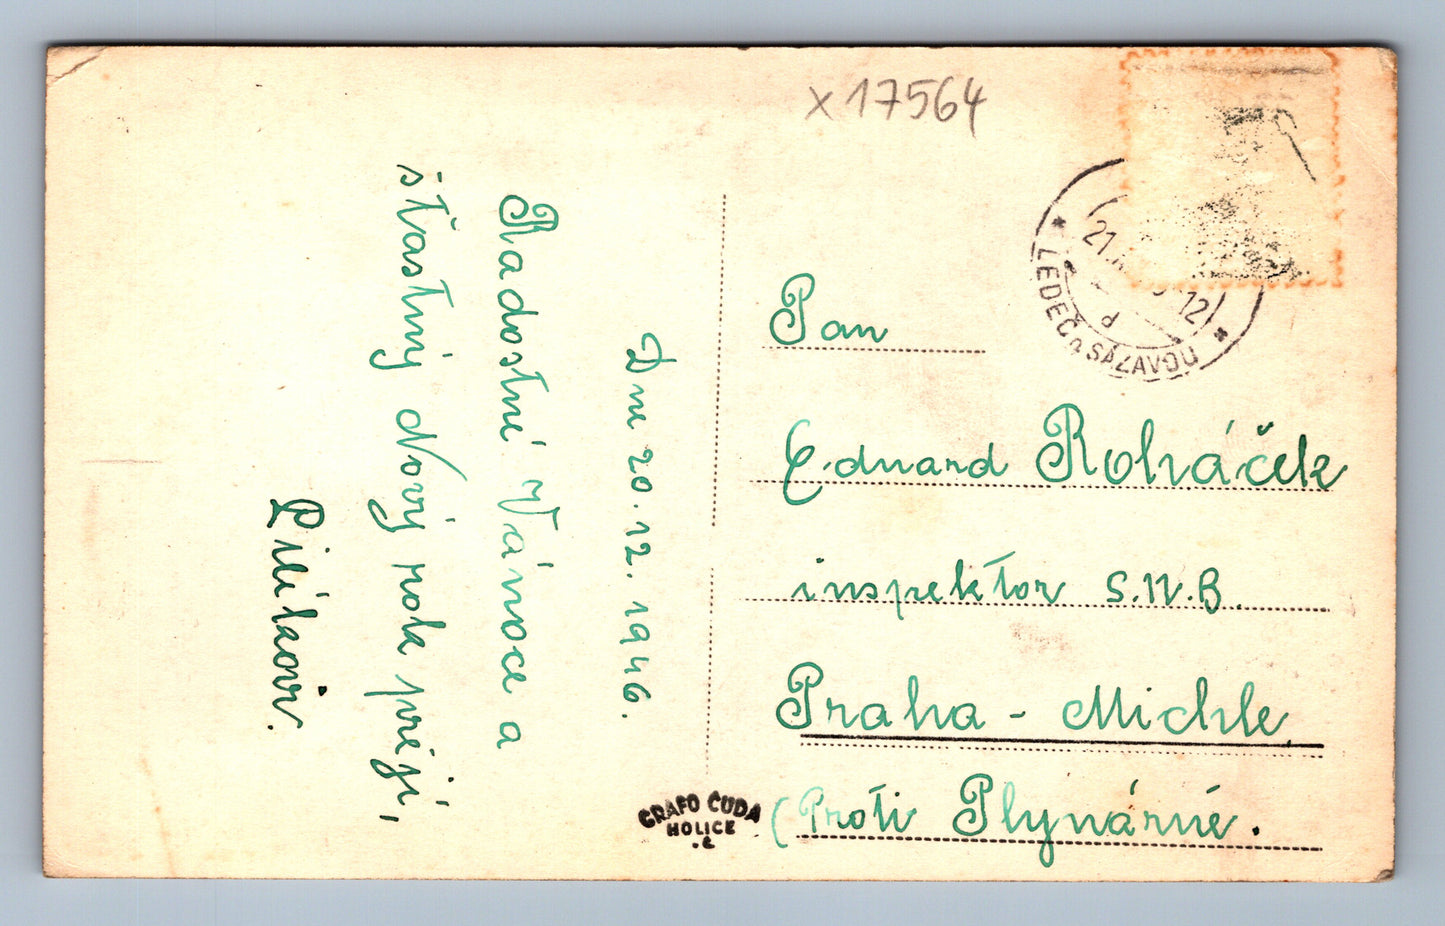 x 17564
Dne 20.12.1946.
Radostné Vánoce a
šťastný Nový rok přejí,
LEDEČ n. SÁZAVOU
21.
12
d
Pan
Eduard Roháček
inspektor S.N.B.
Praha - Michle.
(Proti Plynárně.
GRAFO ČUDA
HOLICE
.č